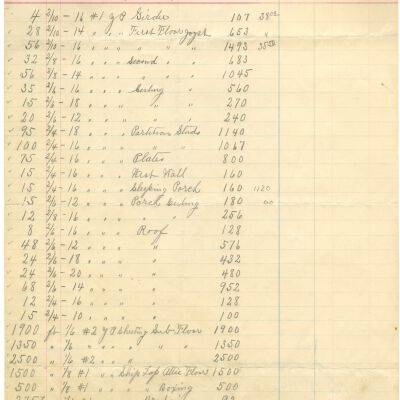 4 2/10 - 16 #1 y P Girder 107 38 02
28 2/10 - 14 " " " First Floor joyst 653 "
56 2/10 - 16 " " " " " " 1493 35 50
32 2/8 - 16 " " " Second " " 683
56 2/8 - 14 " " " " " " 1045
35 2/6 - 16 " " " Ceiling " 560
15 2/6 - 18 " " " " " 270
20 2/6 - 12 " " " " " 240
95 2/4 - 18 " " " Partition Studs 1140
100 2/4 - 16 " " " " " 1067
75 2/4 - 16 " " " Plates 800
15 2/4 - 16 " " " Wall 160
15 2/4 - 16 " " " Sleeping Porch 160 1120
15 2/6 - 12 " " " Porch Ceiling 180 00
12 2/8 - 16 " " " " " 256
8 2/6 - 16 " " " Roof 128
48 2/6 - 12 " " " " 576
24 2/6 - 18 " " " " 432
24 2/6 - 20 " " " " 480
68 2/6 - 14 " " " " 952
12 2/4 - 16 " " " " 128
15 2/4 - 10 " " " " 100
1900 ft 1/6 #2 y P Sheeting Sub Floor 1900
1350 " 1/6 " " " " " 1350
2500 " 1/6 #2 " " " 2500
1500 " 1/8 #1 " " Ship Lap Attic Floor 1500
500 " 1/8 #1 " " " " Boxing 500